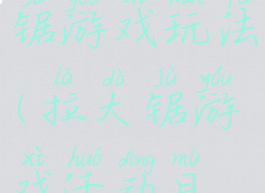 jù yóu xì wán fǎ
锯游戏玩法
lā dà jù yóu
(拉大锯游
xì huó dòng mù
戏活动目